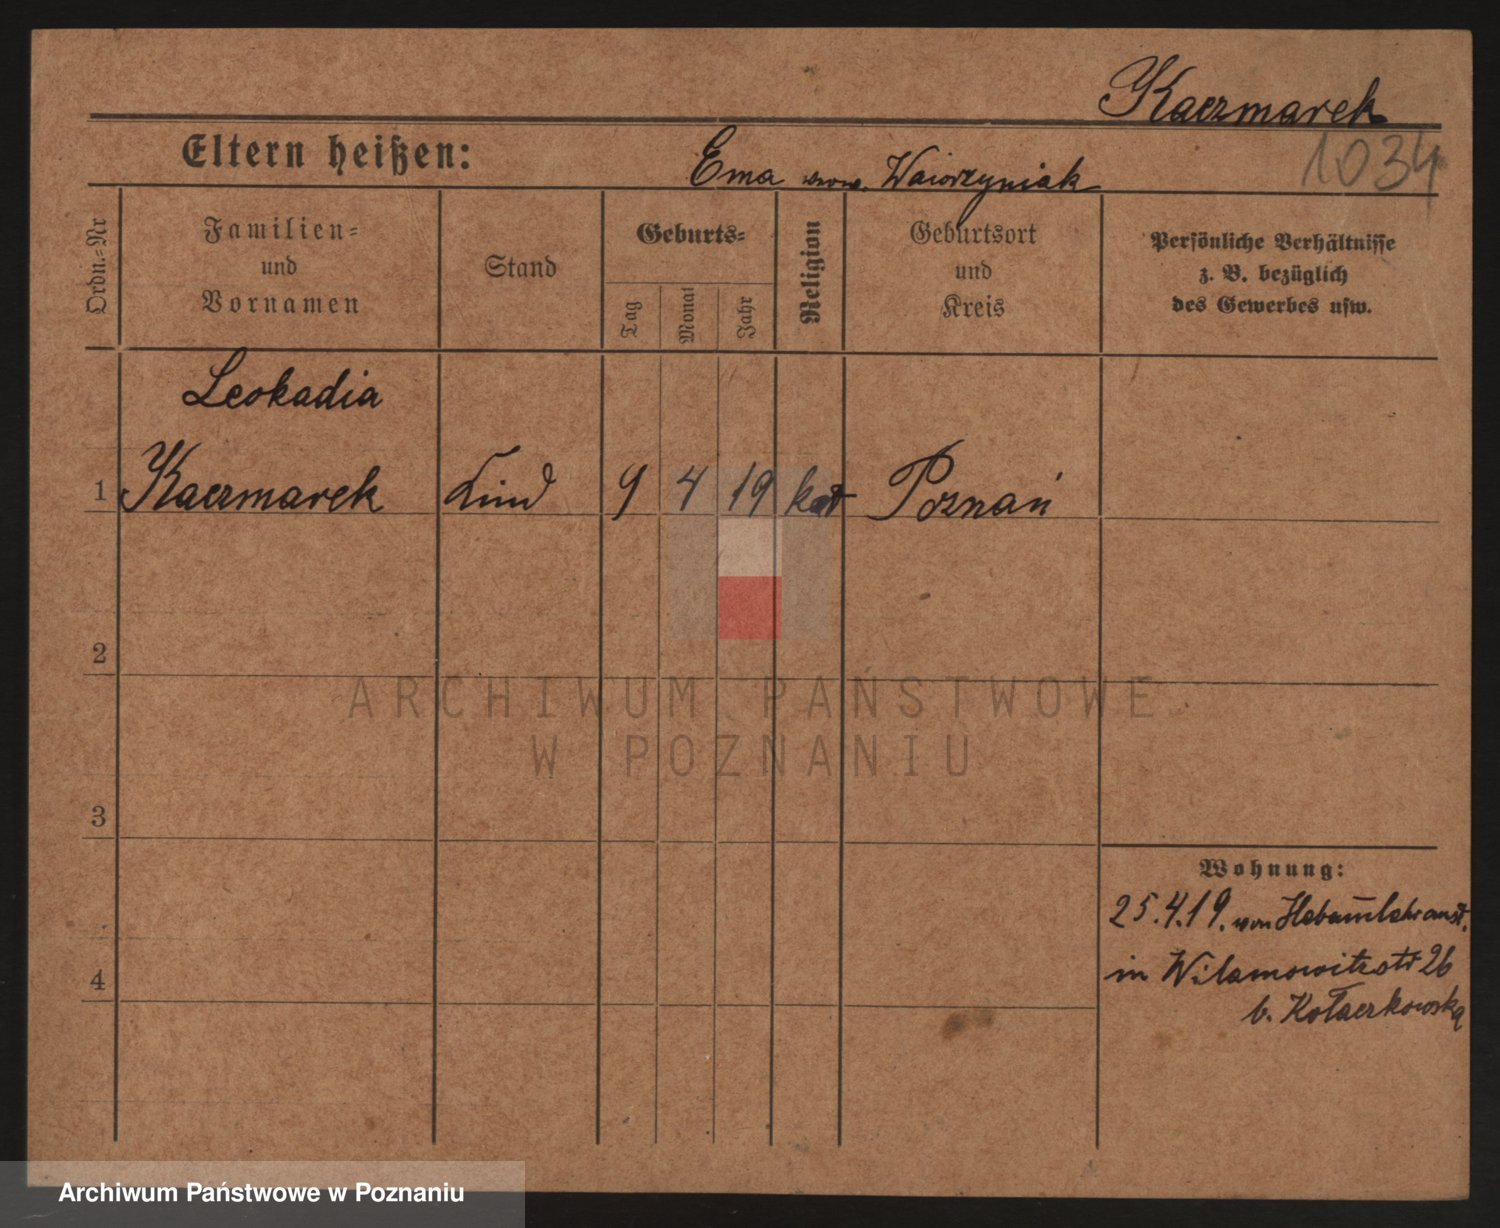 Kaczmarek
1034
Eltern heißen:
Ema Wawrzyniak
Ordn.=Nr
Familien=
und
Vornamen
Stand
Geburts=
Tag
Monat
Jahr
Religion
Geburtsort
und
Kreis
Persönliche Verhältnisse
z. B. bezüglich
des Gewerbes usw.
Leokadia
1 Kaczmarek Kind 9 4 19 kat Poznań
2
3
4
Wohnung:
25.4.19. von Hebamlehranst.
in Wilamowitzstr 26
b. Kołaczkowską
ARCHIWUM PAŃSTWOWE
W POZNANIU
Archiwum Państwowe w Poznaniu